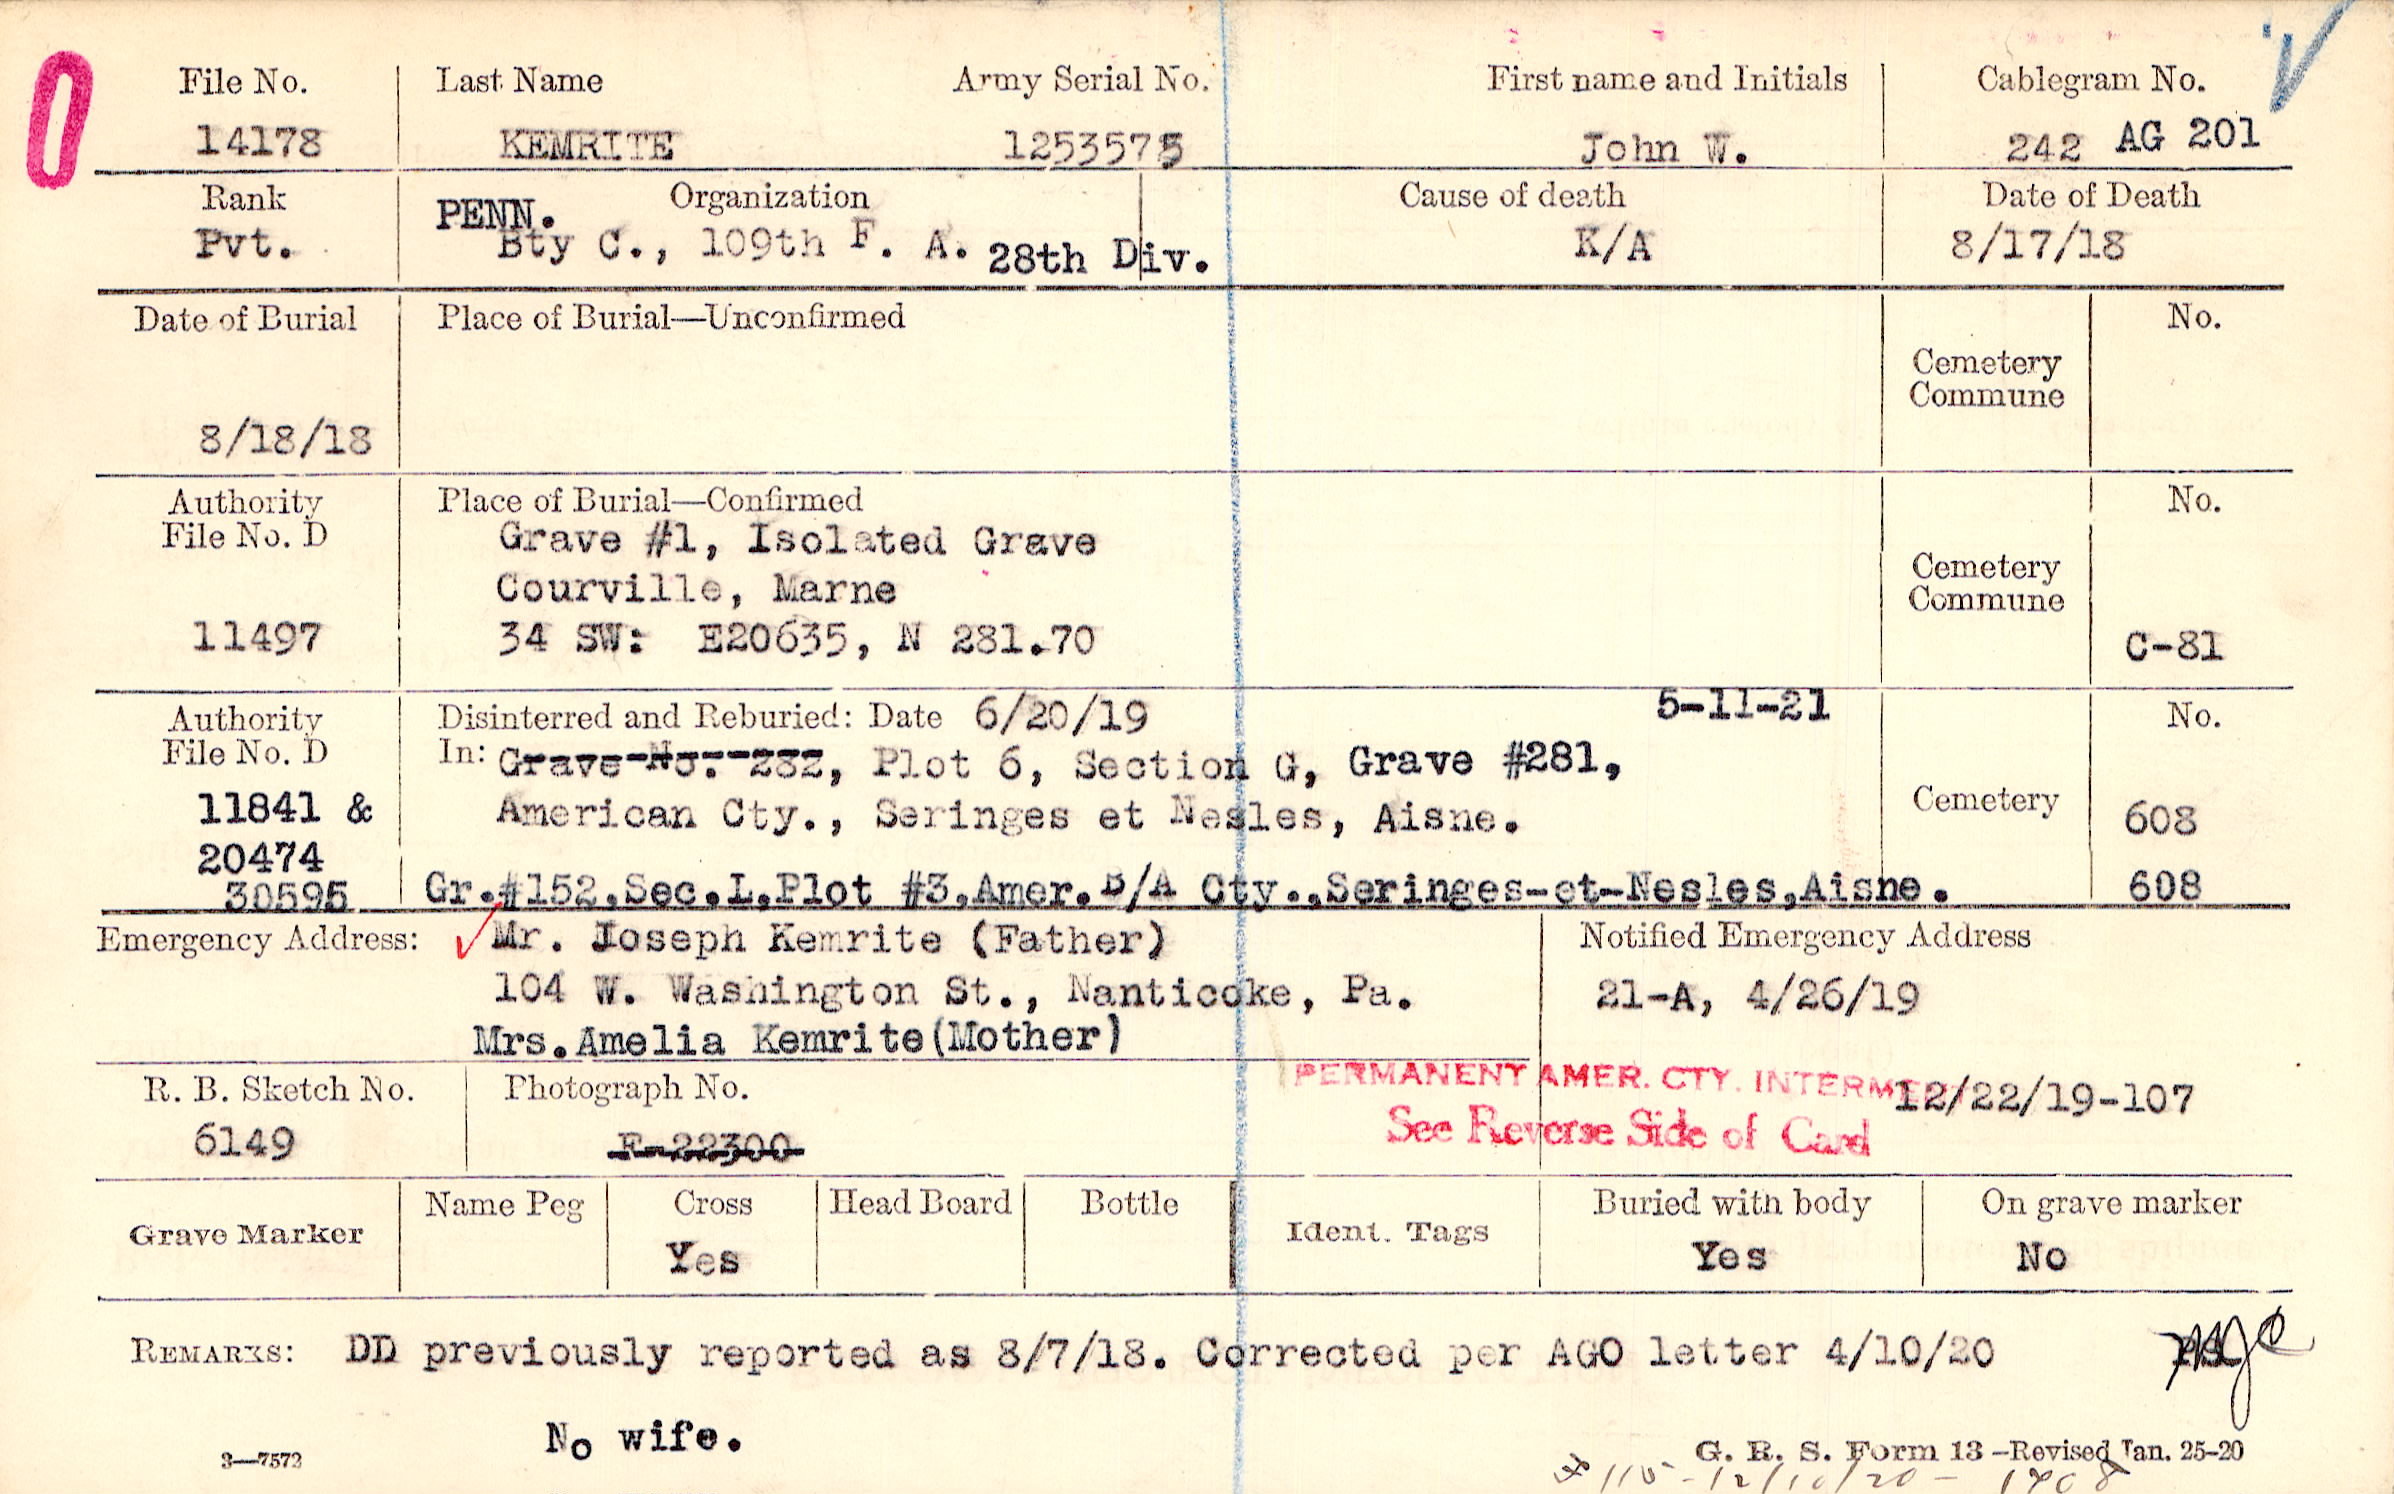 File No. Last Name Army Serial No. First name and Initials Cablegram No.
14178 KEMRITE 1253575 John W. 242 AG 201
Rank Organization Cause of death Date of Death
Pvt. PENN. Bty C., 109th F. A. 28th Div. K/A 8/17/18
Date of Burial Place of Burial—Unconfirmed No.
Cemetery
Commune
8/18/18
Authority Place of Burial—Confirmed No.
File No. D Grave #1, Isolated Grave
Courville, Marne Cemetery
Commune
11497 34 SW: E20635, N 281.70 C-81
Authority Disinterred and Reburied: Date 6/20/19 5-11-21 No.
File No. D In: Grave No. 282, Plot 6, Section G, Grave #281,
11841 & American Cty., Seringes et Nesles, Aisne. Cemetery 608
20474
30595 Gr.#152,Sec.L,Plot #3,Amer.B/A Cty.,Seringes-et-Nesles,Aisne. 608
Emergency Address: Mr. Joseph Kemrite (Father) Notified Emergency Address
104 W. Washington St., Nanticoke, Pa. 21-A, 4/26/19
Mrs.Amelia Kemrite(Mother)
R. B. Sketch No. Photograph No. PERMANENT AMER. CTY. INTERMENT 12/22/19-107
6149 F-22300 See Reverse Side of Card
Grave Marker Name Peg Cross Head Board Bottle Ident. Tags Buried with body On grave marker
Yes Yes No
REMARKS: DD previously reported as 8/7/18. Corrected per AGO letter 4/10/20
No wife.
3—7572 G. R. S. Form 13—Revised Jan. 25-20